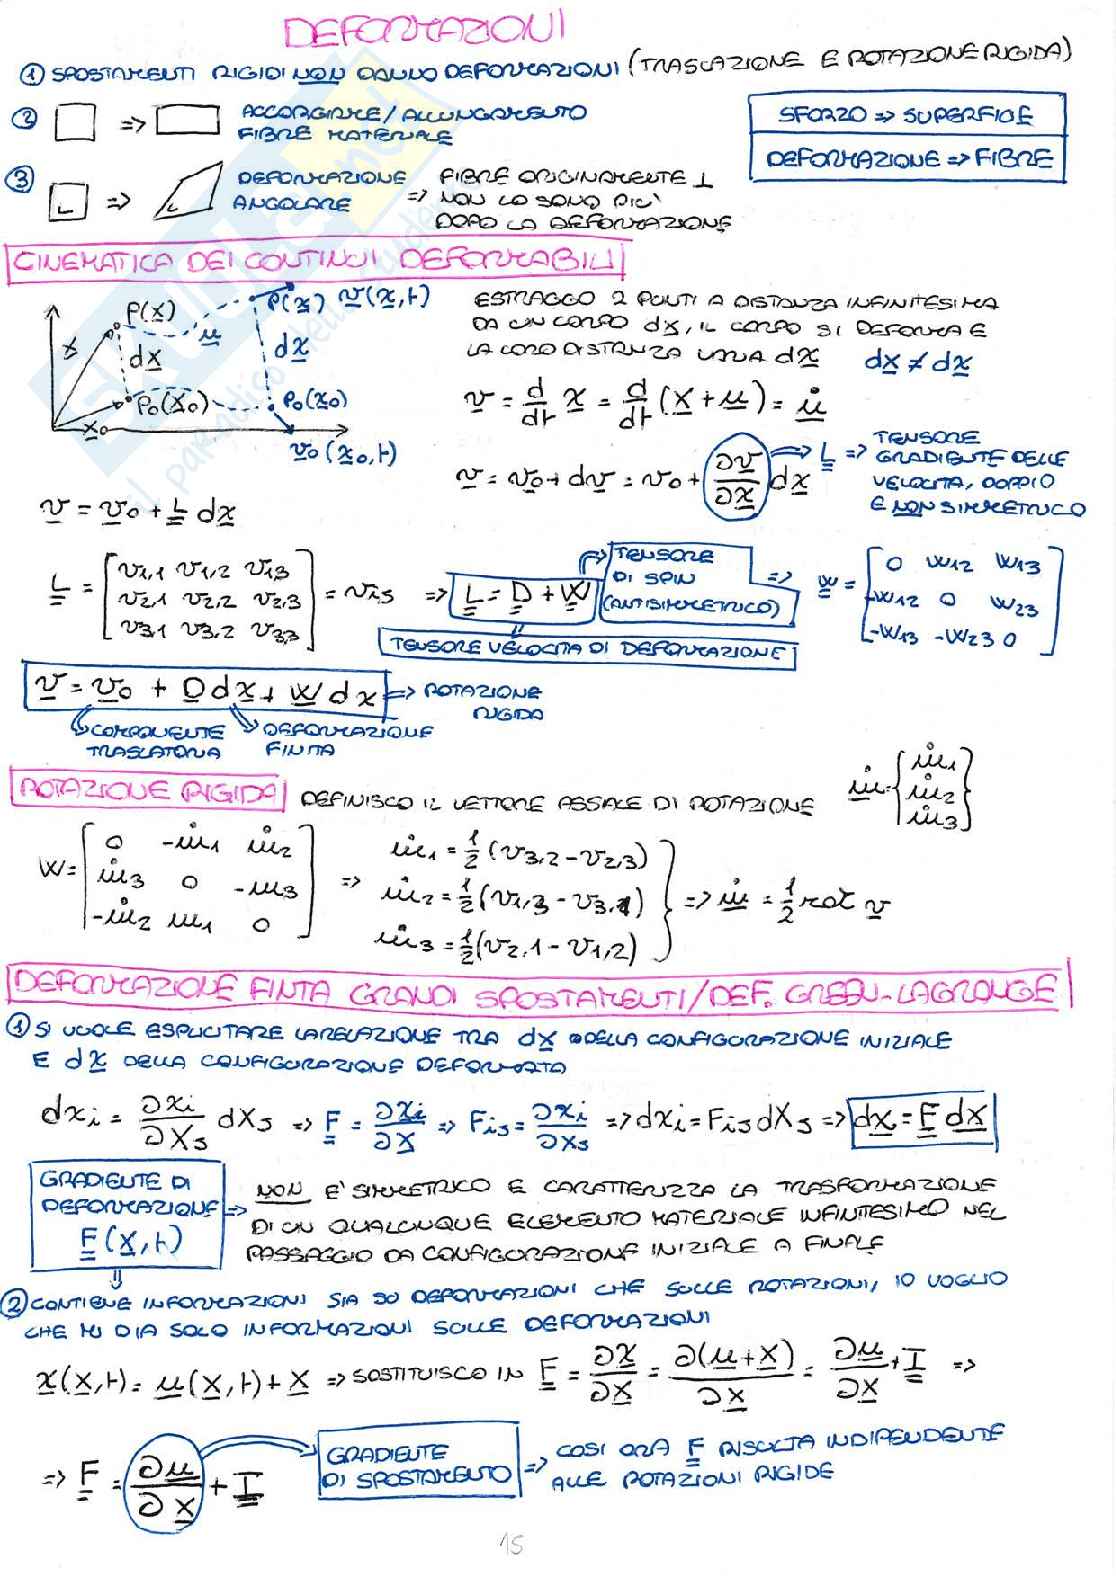 DEFORMAZIONI
① SPOSTAMENTI RIGIDI NON DANNO DEFORMAZIONI (TRASLAZIONE E ROTAZIONE RIGIDA)
② => ACCORCIARE/ALLUNGAMENTO
FIBRE MATERIALE
SFORZO => SUPERFICIE
DEFORMAZIONE => FIBRE
③ => DEFORMAZIONE ANGOLARE => FIBRE ORIGINARIAMENTE ⊥
NON LO SONO PIU'
DOPO LA DEFORMAZIONE
CINEMATICA DEI CONTINUI DEFORMABILI
P(X) P(x) v(x,t)
X dX u dx
P0(X0) P0(x0)
X0 v0(x0,t)
ESTRAGGO 2 PUNTI A DISTANZA INFINITESIMA
DA UN CORPO dX, IL CORPO SI DEFORMA E
LA LORO DISTANZA VARIA dx dX ≠ dx
v = d/dt x = d/dt (X + u) = u̇
v = v0 + dv = v0 + ∂v/∂x dx => L => TENSORE
GRADIENTE DELLE
VELOCITA, DOPPIO
E NON SIMMETRICO
v = v0 + L dx
L = [v1,1 v1,2 v1,3
v2,1 v2,2 v2,3
v3,1 v3,2 v3,3] = vi,j => L = D + W
TENSORE
DI SPIN
(ANTISIMMETRICO)
=> W = [0 W12 W13
-W12 0 W23
-W13 -W23 0]
TENSORE VELOCITA DI DEFORMAZIONE
v = v0 + D dx + W dx => ROTAZIONE
RIGIDA
COMPONENTE
TRASLATORIA
DEFORMAZIONE
FINITA
ROTAZIONE RIGIDA DEFINISCO IL VETTORE ASSALE DI ROTAZIONE ẇ = {ẇ1
ẇ2
ẇ3}
W = [0 -ẇ1 ẇ2
ẇ3 0 -ẇ3
-ẇ2 ẇ1 0]
=> ẇ1 = 1/2 (v3,2 - v2,3)
ẇ2 = 1/2 (v1,3 - v3,1)
ẇ3 = 1/2 (v2,1 - v1,2)
=> ẇ = 1/2 rot v
DEFORMAZIONE FINITA GRANDI SPOSTAMENTI/DEF. GREEN-LAGRANGE
① SI VUOLE ESPLICITARE LA RELAZIONE TRA dX DELLA CONFIGURAZIONE INIZIALE
E dx DELLA CONFIGURAZIONE DEFORMATA
dxi = ∂xi/∂XJ dXJ => F = ∂xi/∂X => FiJ = ∂xi/∂XJ => dxi = FiJ dXJ => dx = F dX
GRADIENTE DI
DEFORMAZIONE
F(X,t)
=> NON E' SIMMETRICO E CARATTERIZZA LA TRASFORMAZIONE
DI UN QUALUNQUE ELEMENTO MATERIALE INFINITESIMO NEL
PASSAGGIO DA CONFIGURAZIONE INIZIALE A FINALE
② CONTIENE INFORMAZIONI SIA SU DEFORMAZIONI CHE SULLE ROTAZIONI, IO VOGLIO
CHE MI DIA SOLO INFORMAZIONI SULLE DEFORMAZIONI
x(X,t) = u(X,t) + X => SOSTITUISCO IN F = ∂x/∂X = ∂(u+X)/∂X = ∂u/∂X + I =>
=> F = ∂u/∂X + I
GRADIENTE
DI SPOSTAMENTO
=> COSI ORA F RISULTA INDIPENDENTE
ALLE ROTAZIONI RIGIDE
15